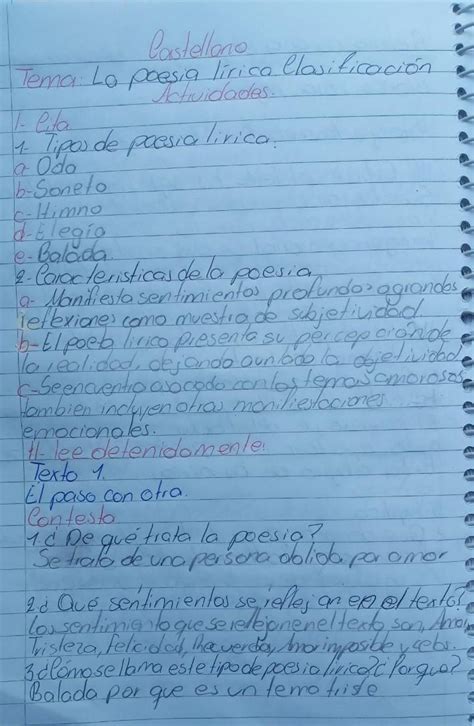 Castellano
Tema: La poesia lirica Clasificación
Actividades.
1- Cita
1. Tipos de poesia lirica.
a- Oda
b- Soneto
c- Himno
d- Elegia
e- Balada.
2- Caracteristicas de la poesia
a- Manifiesta sentimientos profundos a grandes
reflexiones como muestra de subjetividad.
b- El poeta lirico presenta su percepción de
la realidad, dejando aun lado la objetividad
c- Se encuentra asociado con los temas amorosos
tambien incluyen otras manifestaciones
emocionales.
II- lee detenidamente:
Texto 1.
El paso con otra.
Contesto
1¿ De qué trata la poesia?
Se trata de una persona dolida por amor
2¿ Qué sentimientos se reflejan en el texto?
Los sentimiento que se reflejan en el texto son, Amor,
tristeza, felicidad, Amor imposible y celos.
3¿Cómo se llama este tipo de poesia lirica? ¿ Porqua?
Balada por que es un tema triste